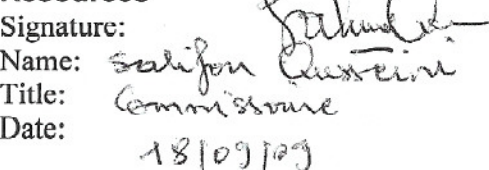 Signature:
Name: Salifou Ousseini
Title: Commissaire
Date:
18/09/09